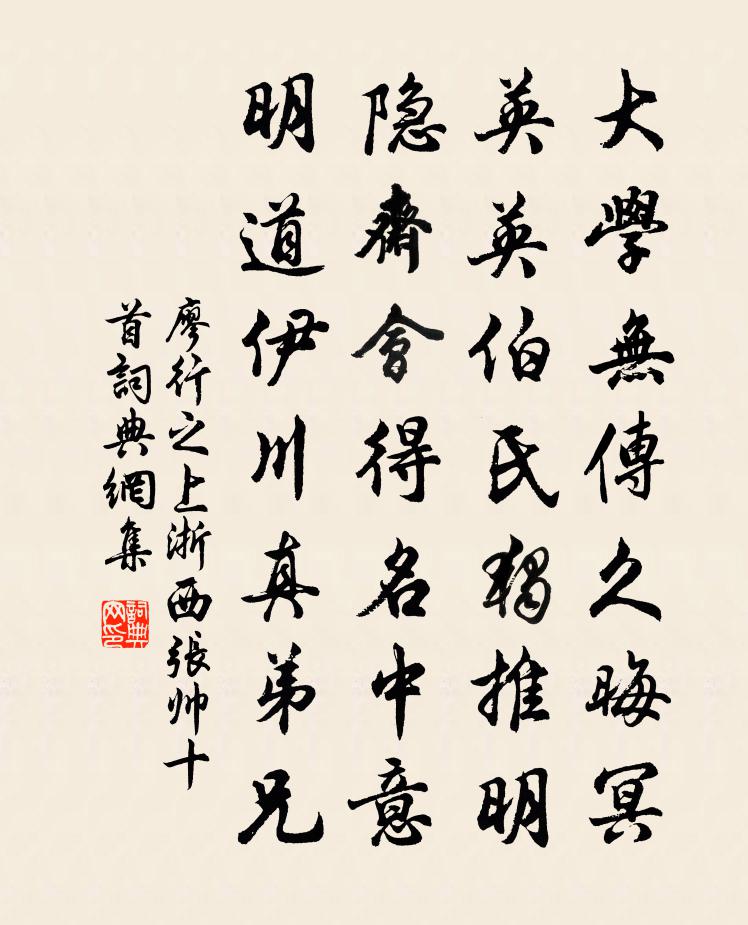 大學無傳久晦冥
英英伯氏獨推明
隐齋會得名中意
明道伊川真弟兄
廖行之上浙西張帅十
首詞典網集
詞典网印